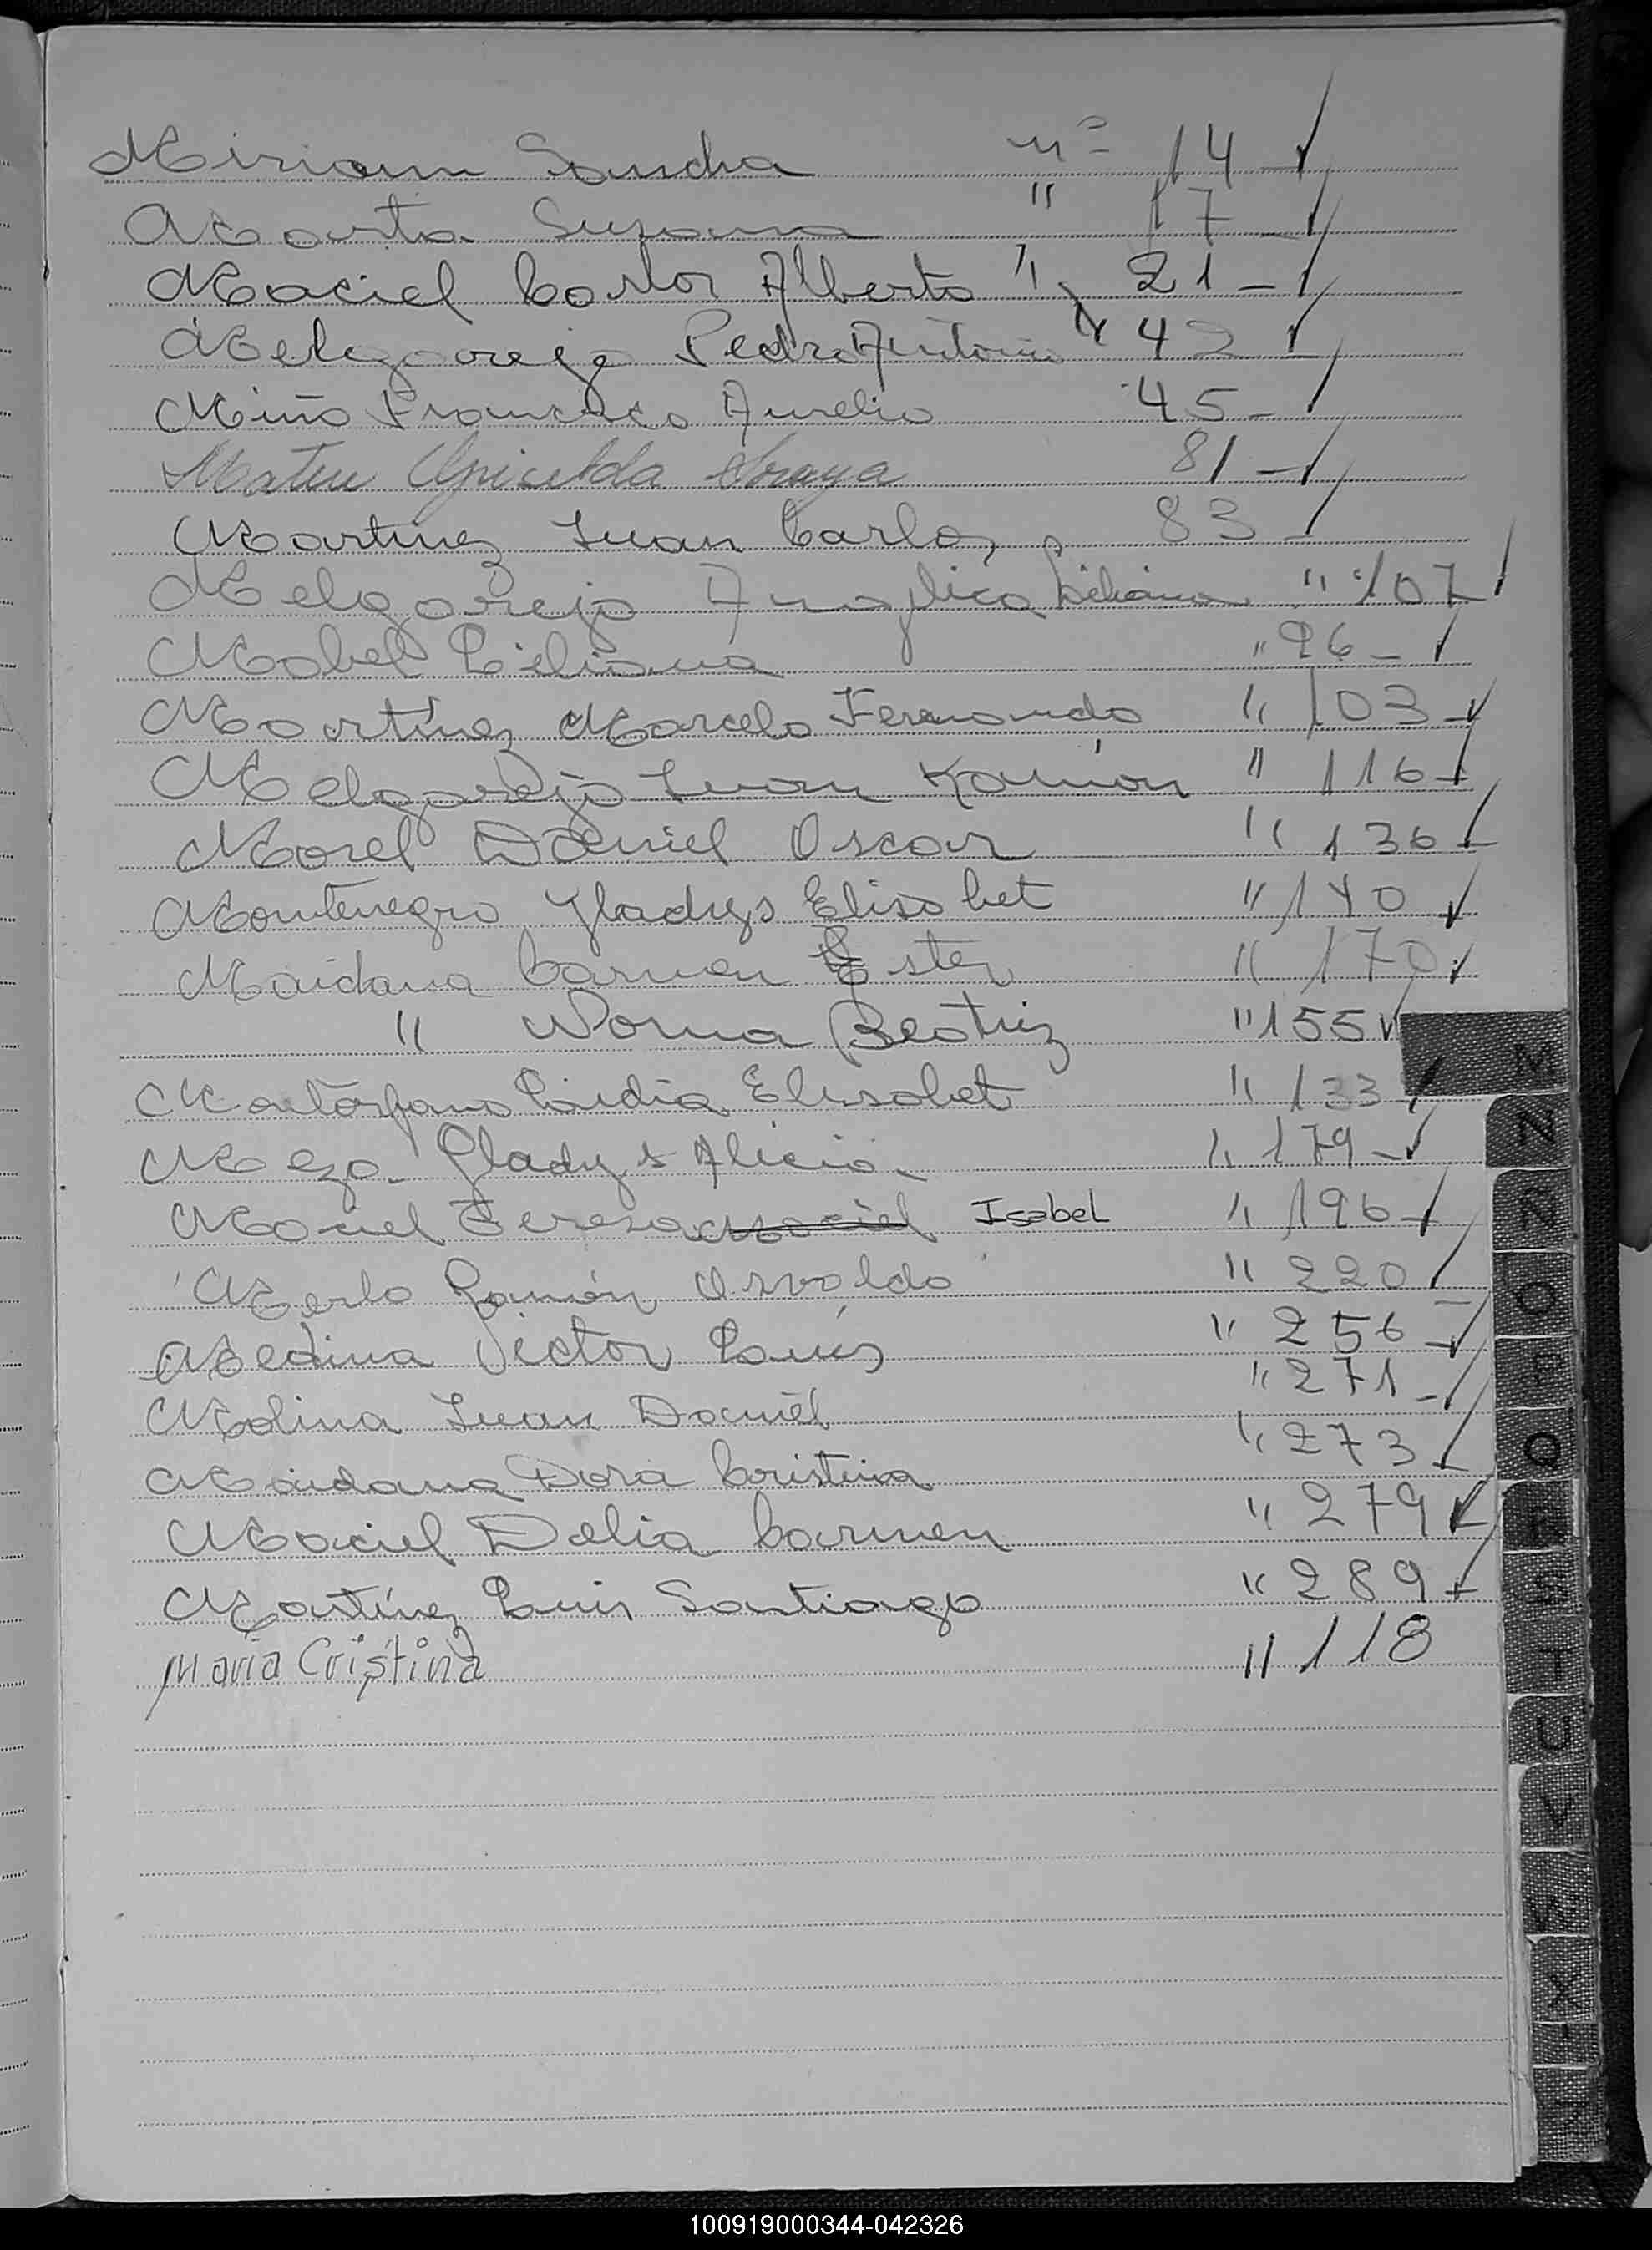 Miriam Sandra nº 14
Marta Susana " 17
Maciel Carlos Alberto " 21
Melgarejo Pedro Antonio " 42
Miño Francisco Aurelio 45
Mateu Griselda 81
Martinez Juan Carlos 83
Melgarejo Angélica Liliana " 107
Mabel Liliana " 96
Martínez Marcelo Fernando " 103
Melgarejo Juan Ramón " 116
Morel Daniel Oscar " 136
Montenegro Gladys Elisabet " 140
Maidana Carmen Ester " 170
" Norma Beatriz " 155
Lidia Elisabet " 133
Meza Gladys Alicia " 179
Maciel Teresa Maciel Isabel " 196
Merlo Ramón Osvaldo " 220
Medina Victor Luis " 256
Molina Juan Daniel " 271
Maidana Dora Cristina " 273
Maciel Delia Carmen " 279
Martínez Luis Santiago " 289
Maria Cristina " 118
M
N
Ñ
O
P
Q
R
S
T
U
V
W
X
100919000344-042326